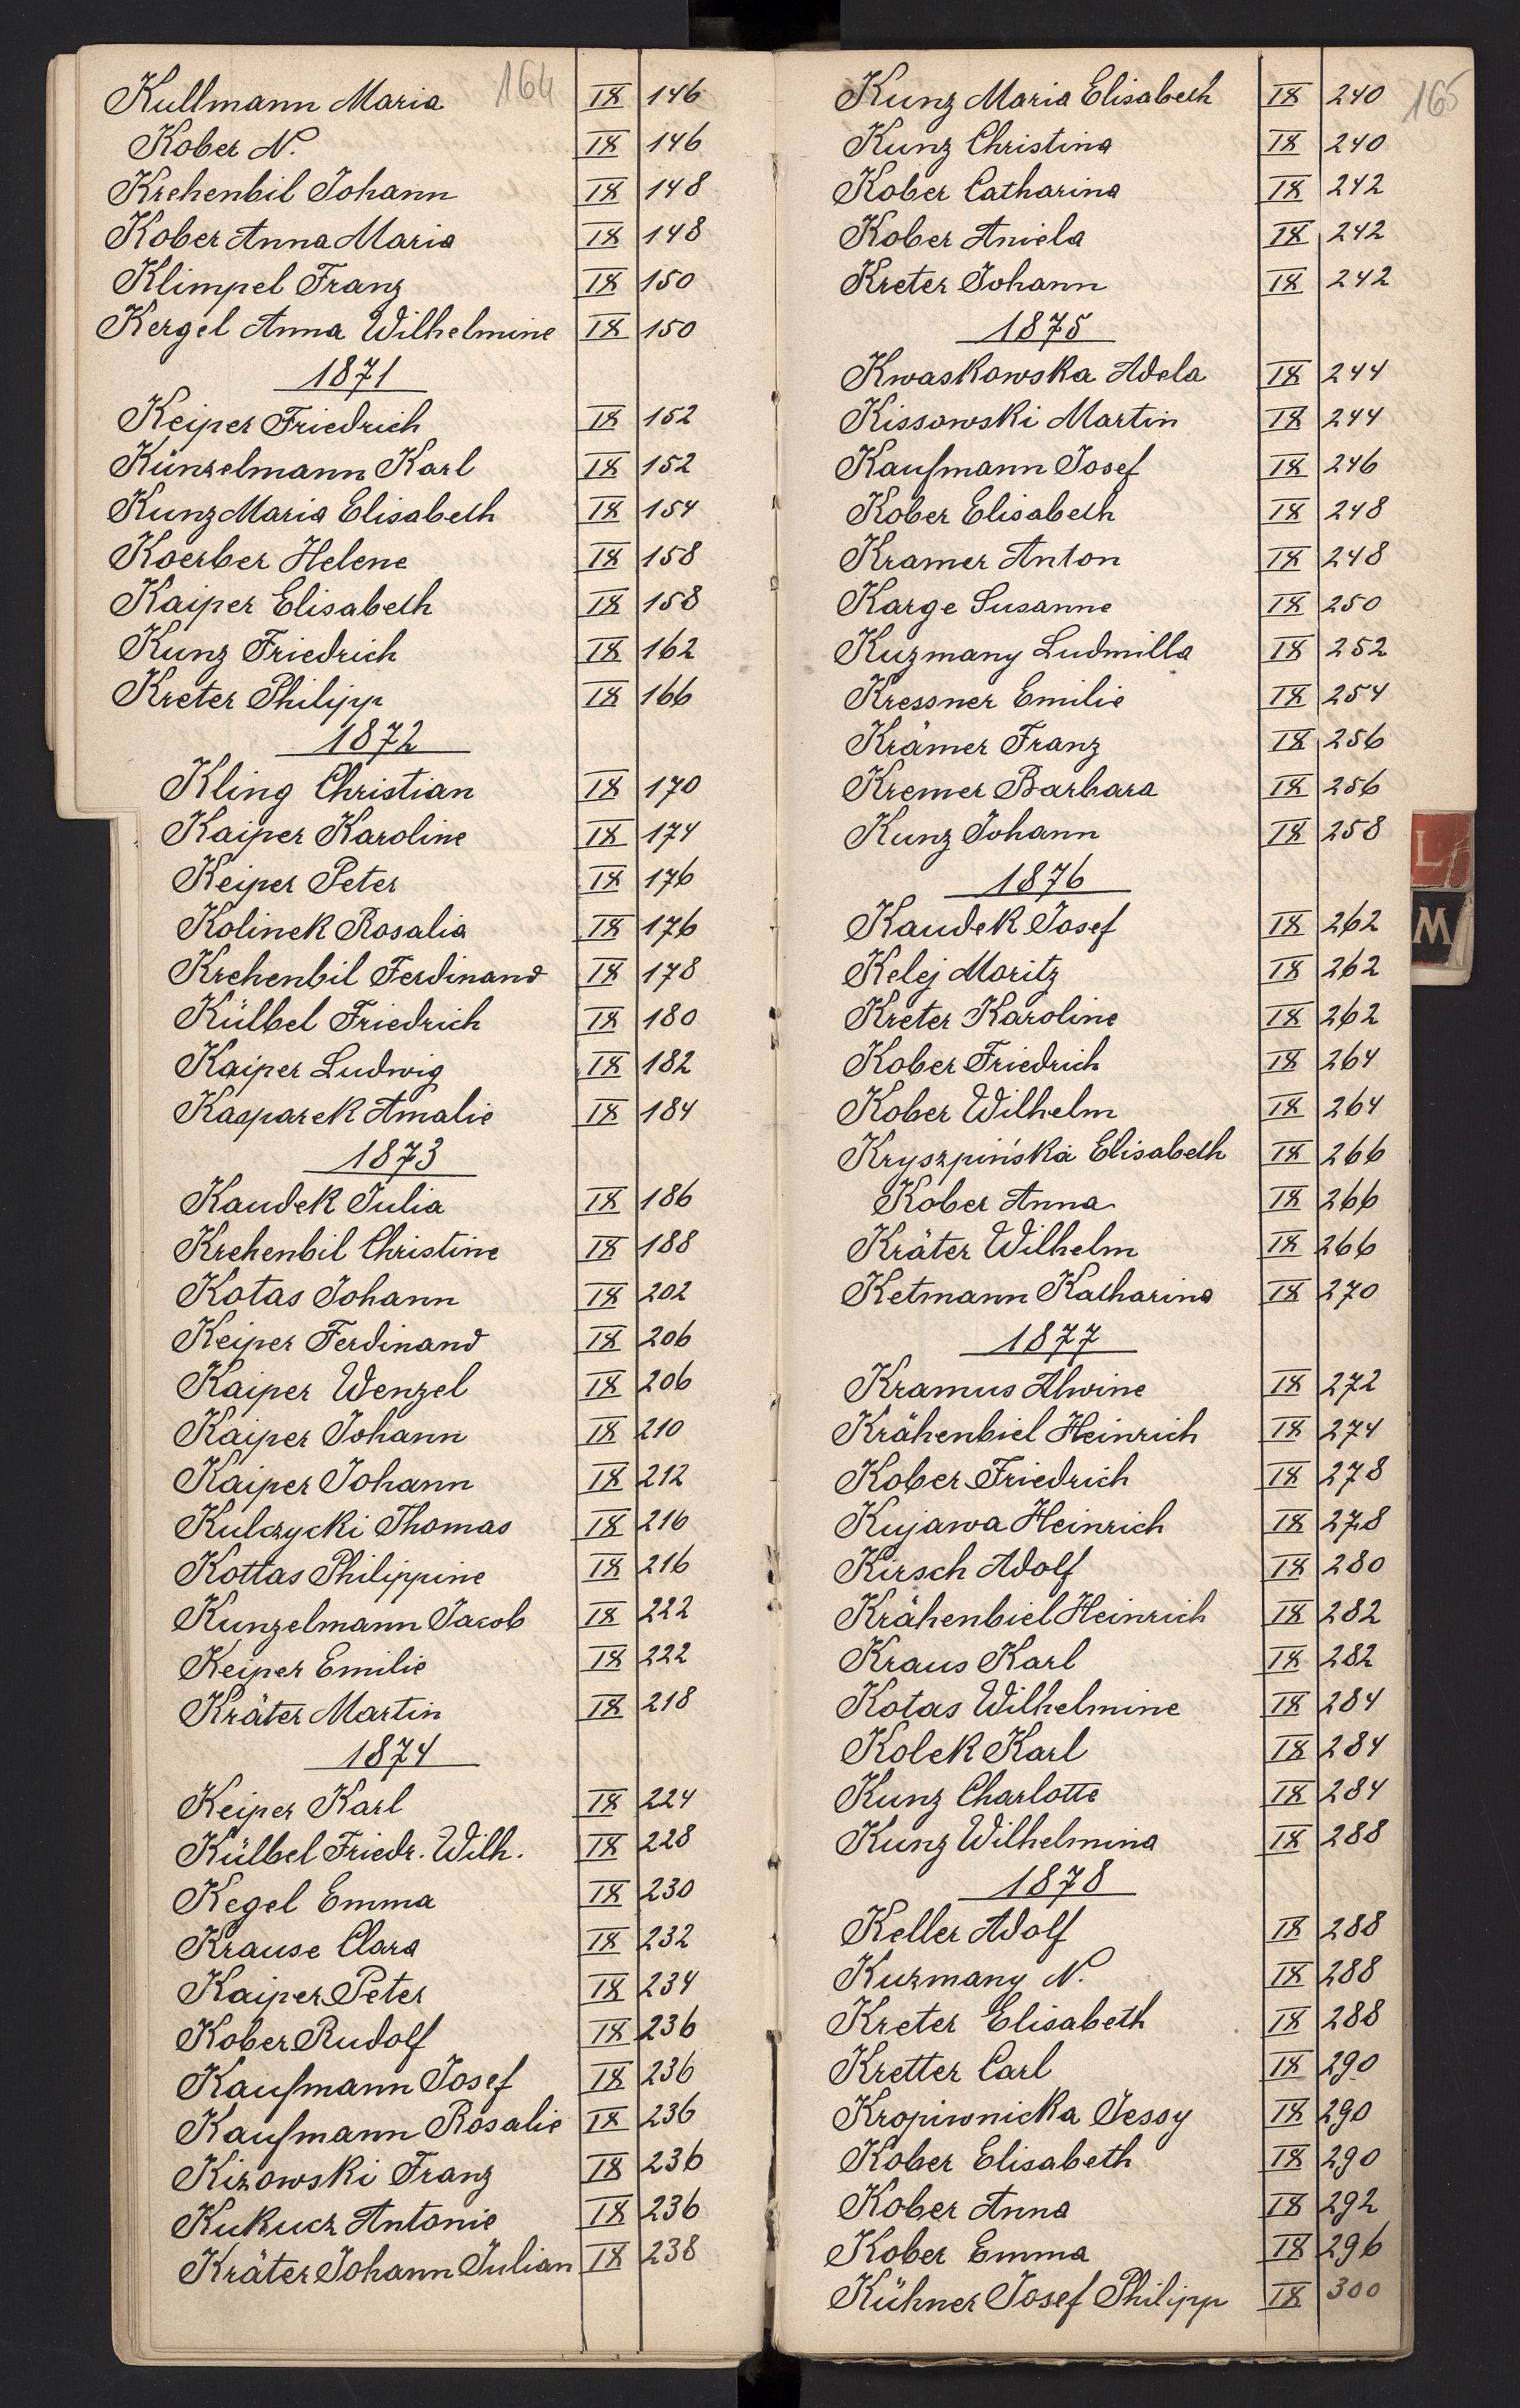 164
Kullmann Maria IX 146
Kober N. IX 146
Krehenbil Johann IX 148
Kober Anna Maria IX 148
Klimpel Franz IX 150
Kergel Anna Wilhelmine IX 150
1871
Keiper Friedrich IX 152
Künzelmann Karl IX 152
Kunz Maria Elisabeth IX 154
Koerber Helene IX 158
Kaiper Elisabeth IX 158
Kunz Friedrich IX 162
Kreter Philipp IX 166
1872
Kling Christian IX 170
Kaiper Karoline IX 174
Keiper Peter IX 176
Kolinek Rosalia IX 176
Krehenbil Ferdinand IX 178
Külbel Friedrich IX 180
Kaiper Ludwig IX 182
Kasparek Amalie IX 184
1873
Kaudek Julia IX 186
Krehenbil Christine IX 188
Kotas Johann IX 202
Keiper Ferdinand IX 206
Kaiper Wenzel IX 206
Kaiper Johann IX 210
Kaiper Johann IX 212
Kulczycki Thomas IX 216
Kottas Philippine IX 216
Kunzelmann Jacob IX 222
Keiper Emilie IX 222
Kräter Martin IX 218
1874
Keiper Karl IX 224
Külbel Friedr. Wilh. IX 228
Kegel Emma IX 230
Krause Clara IX 232
Kaiper Peter IX 234
Kober Rudolf IX 236
Kaufmann Josef IX 236
Kaufmann Rosalie IX 236
Kizowski Franz IX 236
Kukucz Antonie IX 236
Kräter Johann Julian IX 238
165
Kunz Maria Elisabeth IX 240
Kunz Christina IX 240
Kober Catharina IX 242
Kober Aniela IX 242
Kreter Johann IX 242
1875
Kwaskowska Adela IX 244
Kissowski Martin IX 244
Kaufmann Josef IX 246
Kober Elisabeth IX 248
Kramer Anton IX 248
Karge Susanne IX 250
Kuzmany Ludmilla IX 252
Kressner Emilie IX 254
Krämer Franz IX 256
Kremer Barbara IX 256
Kunz Johann IX 258
1876
Kaudek Josef IX 262
Kelej Moritz IX 262
Kreter Karoline IX 262
Kober Friedrich IX 264
Kober Wilhelm IX 264
Kryszpińska Elisabeth IX 266
Kober Anna IX 266
Kräter Wilhelm IX 266
Ketmann Katharina IX 270
1877
Kramus Alwine IX 272
Krähenbiel Heinrich IX 274
Kober Friedrich IX 278
Kujawa Heinrich IX 278
Kirsch Adolf IX 280
Krähenbiel Heinrich IX 282
Kraus Karl IX 282
Kotas Wilhelmine IX 284
Kolek Karl IX 284
Kunz Charlotte IX 284
Kunz Wilhelmina IX 288
1878
Keller Adolf IX 288
Kuzmany N. IX 288
Kreter Elisabeth IX 288
Kretter Carl IX 290
Kropiwnicka Jessy IX 290
Kober Elisabeth IX 290
Kober Anna IX 292
Kober Emma IX 296
Kühner Josef Philipp IX 300
L
M